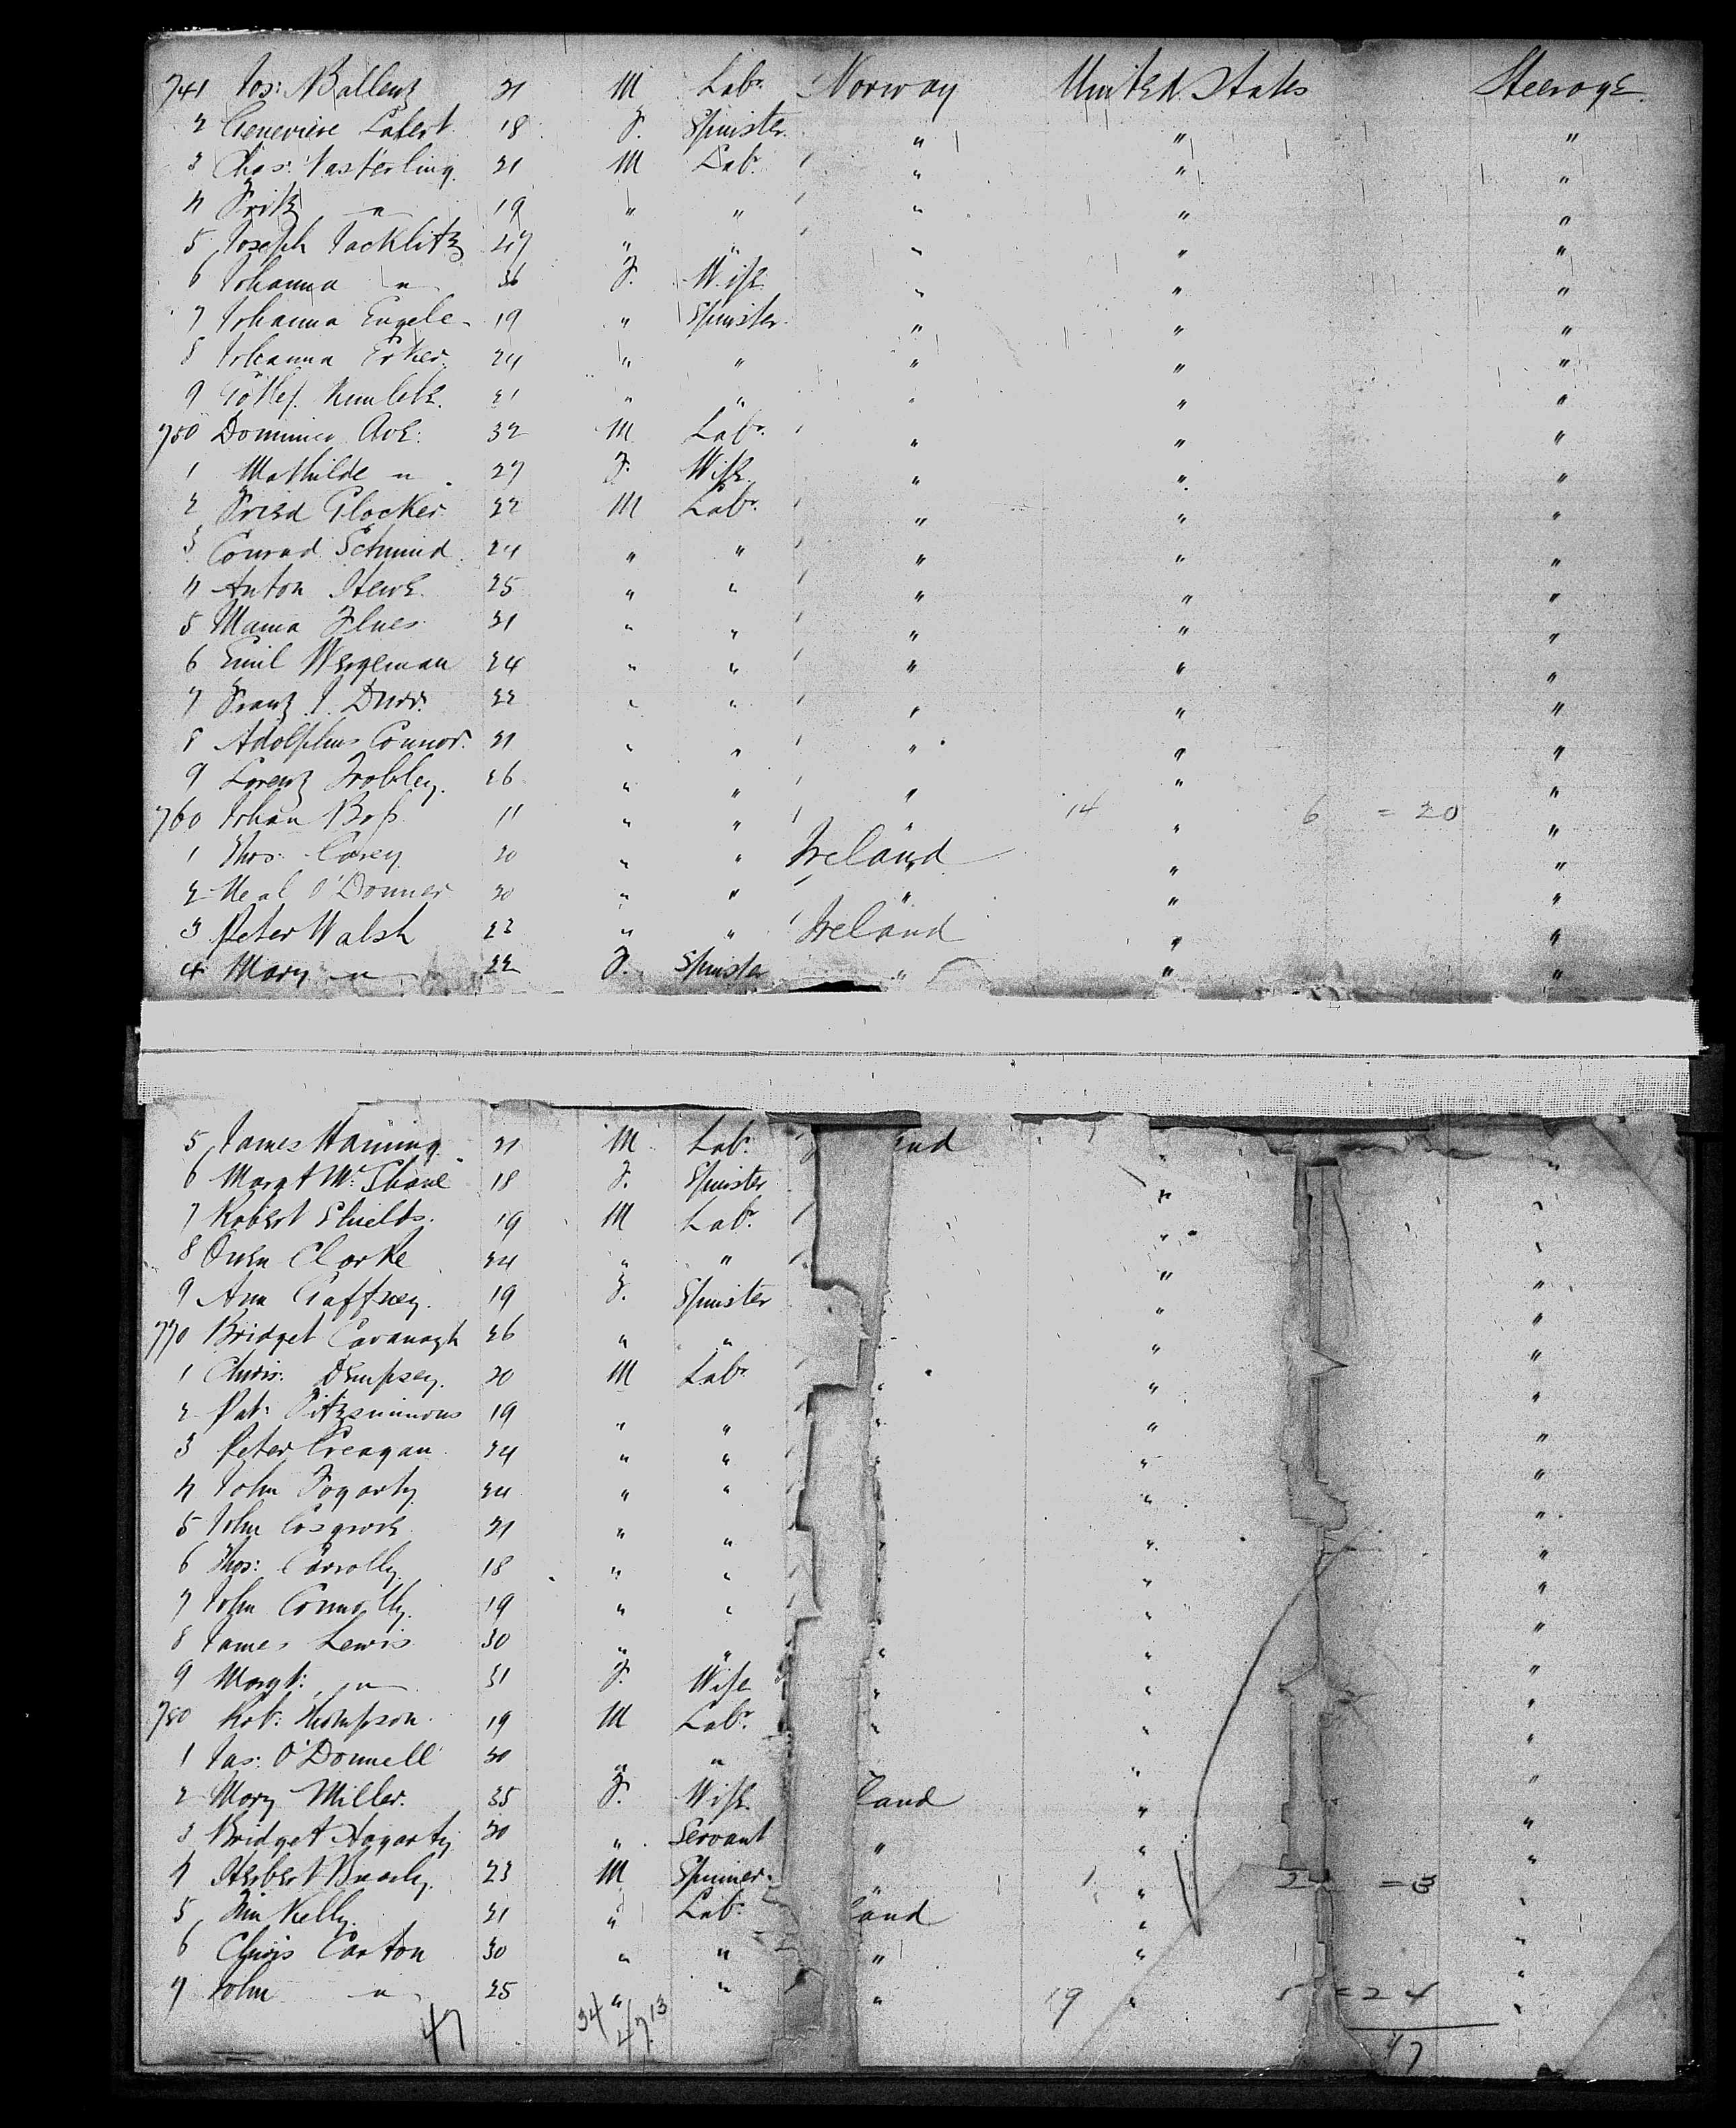 741 Jos: Ballenz 21 M Labr. Norway United States Steerage
2 Genevieve Labert 18 F. Spinster " " "
3 Chas: Vasterling 21 M Labr. " " "
4 Fritz " 19 " " " " "
5 Joseph Jacklitz 27 " " " " "
6 Johanna " 36 F. Wife " " "
7 Johanna Engele 19 " Spinster " " "
8 Johanna Erker 24 " " " " "
9 21 " " " " "
750 Dominico Ave. 32 M Labr. " " "
1 Mathilde " 27 F. Wife " " "
2 Fried Glocker 22 M Labr. " " "
3 Conrad Schmid 24 " " " " "
4 Anton 25 " " " " "
5 Flues 21 " " " " "
6 Emil Wergeman 24 " " " " "
7 Franz J. Durr. 22 " " " " "
8 Adolphus Connor. 21 " " " " "
9 Lorenz Frobley 26 " " " " "
760 Johan Boss 11 " " " 14 " 6 = 20 "
1 Thos: Corey 20 " " Ireland " "
2 Neal O'Donner 20 " " " " "
3 Peter Walsh 22 " " Ireland " "
4 Mary " 22 F. Spinster " " "
5 James Haning 21 M Labr. and " "
6 Margt McShane 18 F. Spinster " "
7 Robert Shields 19 M Labr. " "
8 Owen Clarke 24 " " " "
9 Ann Gaffney 19 F. Spinster " "
770 Bridget Cavanagh 26 " " " "
1 Chris: Dempsey 20 M Labr. " " "
2 Pat: Fitzsimmons 19 " " " " "
3 Peter Creagan 24 " " " " "
4 John Fogarty 24 " " " " "
5 John Cosgrove 21 " " " " "
6 Thos: Carrolly 18 " " " " "
7 John Connolly 19 " " " " "
8 James Lewis 30 " " " " "
9 Margt: " 31 F. Wife " " "
780 Rob: Thompson 19 M Labr. " " "
1 Jas: O'Donnell 30 " " " "
2 Mary Miller. 35 F. Wife land " "
3 Bridget Hagarty 30 " Servant " " "
4 Herbert Brearly 23 M Spinner " 1 " 2 = 3 "
5 Jim Kelly 21 " Labr. land " "
6 Chris Carton 30 " " " " "
7 John " 25 " " " 19 " 5 = 24 "
47 34/13 47 47